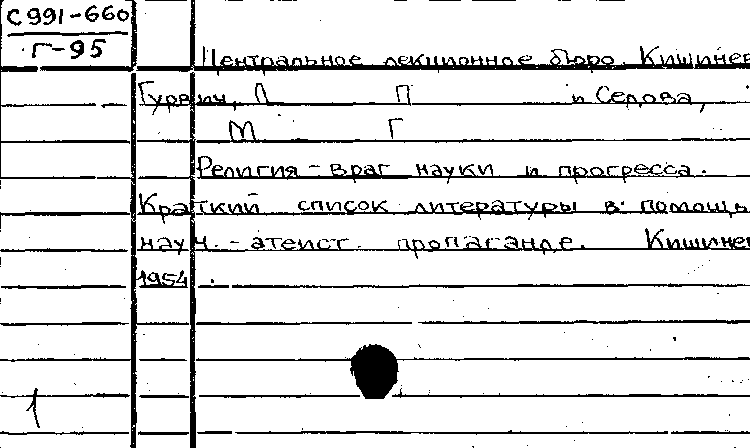 С 991-660
Г-95
Центральное лекционное бюро. Кишинев
Гурвич, Л П и Седова,
М Г
Религия - враг науки и прогресса.
Краткий список литературы в помощь
науч. - атеист. пропаганде. Кишинев
1954.
1